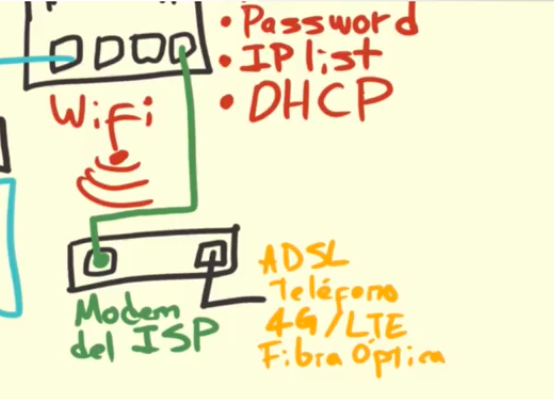 • Password
• IP list
• DHCP
Wifi
Modem
del ISP
ADSL
Teléfono
4G/LTE
Fibra Óptica